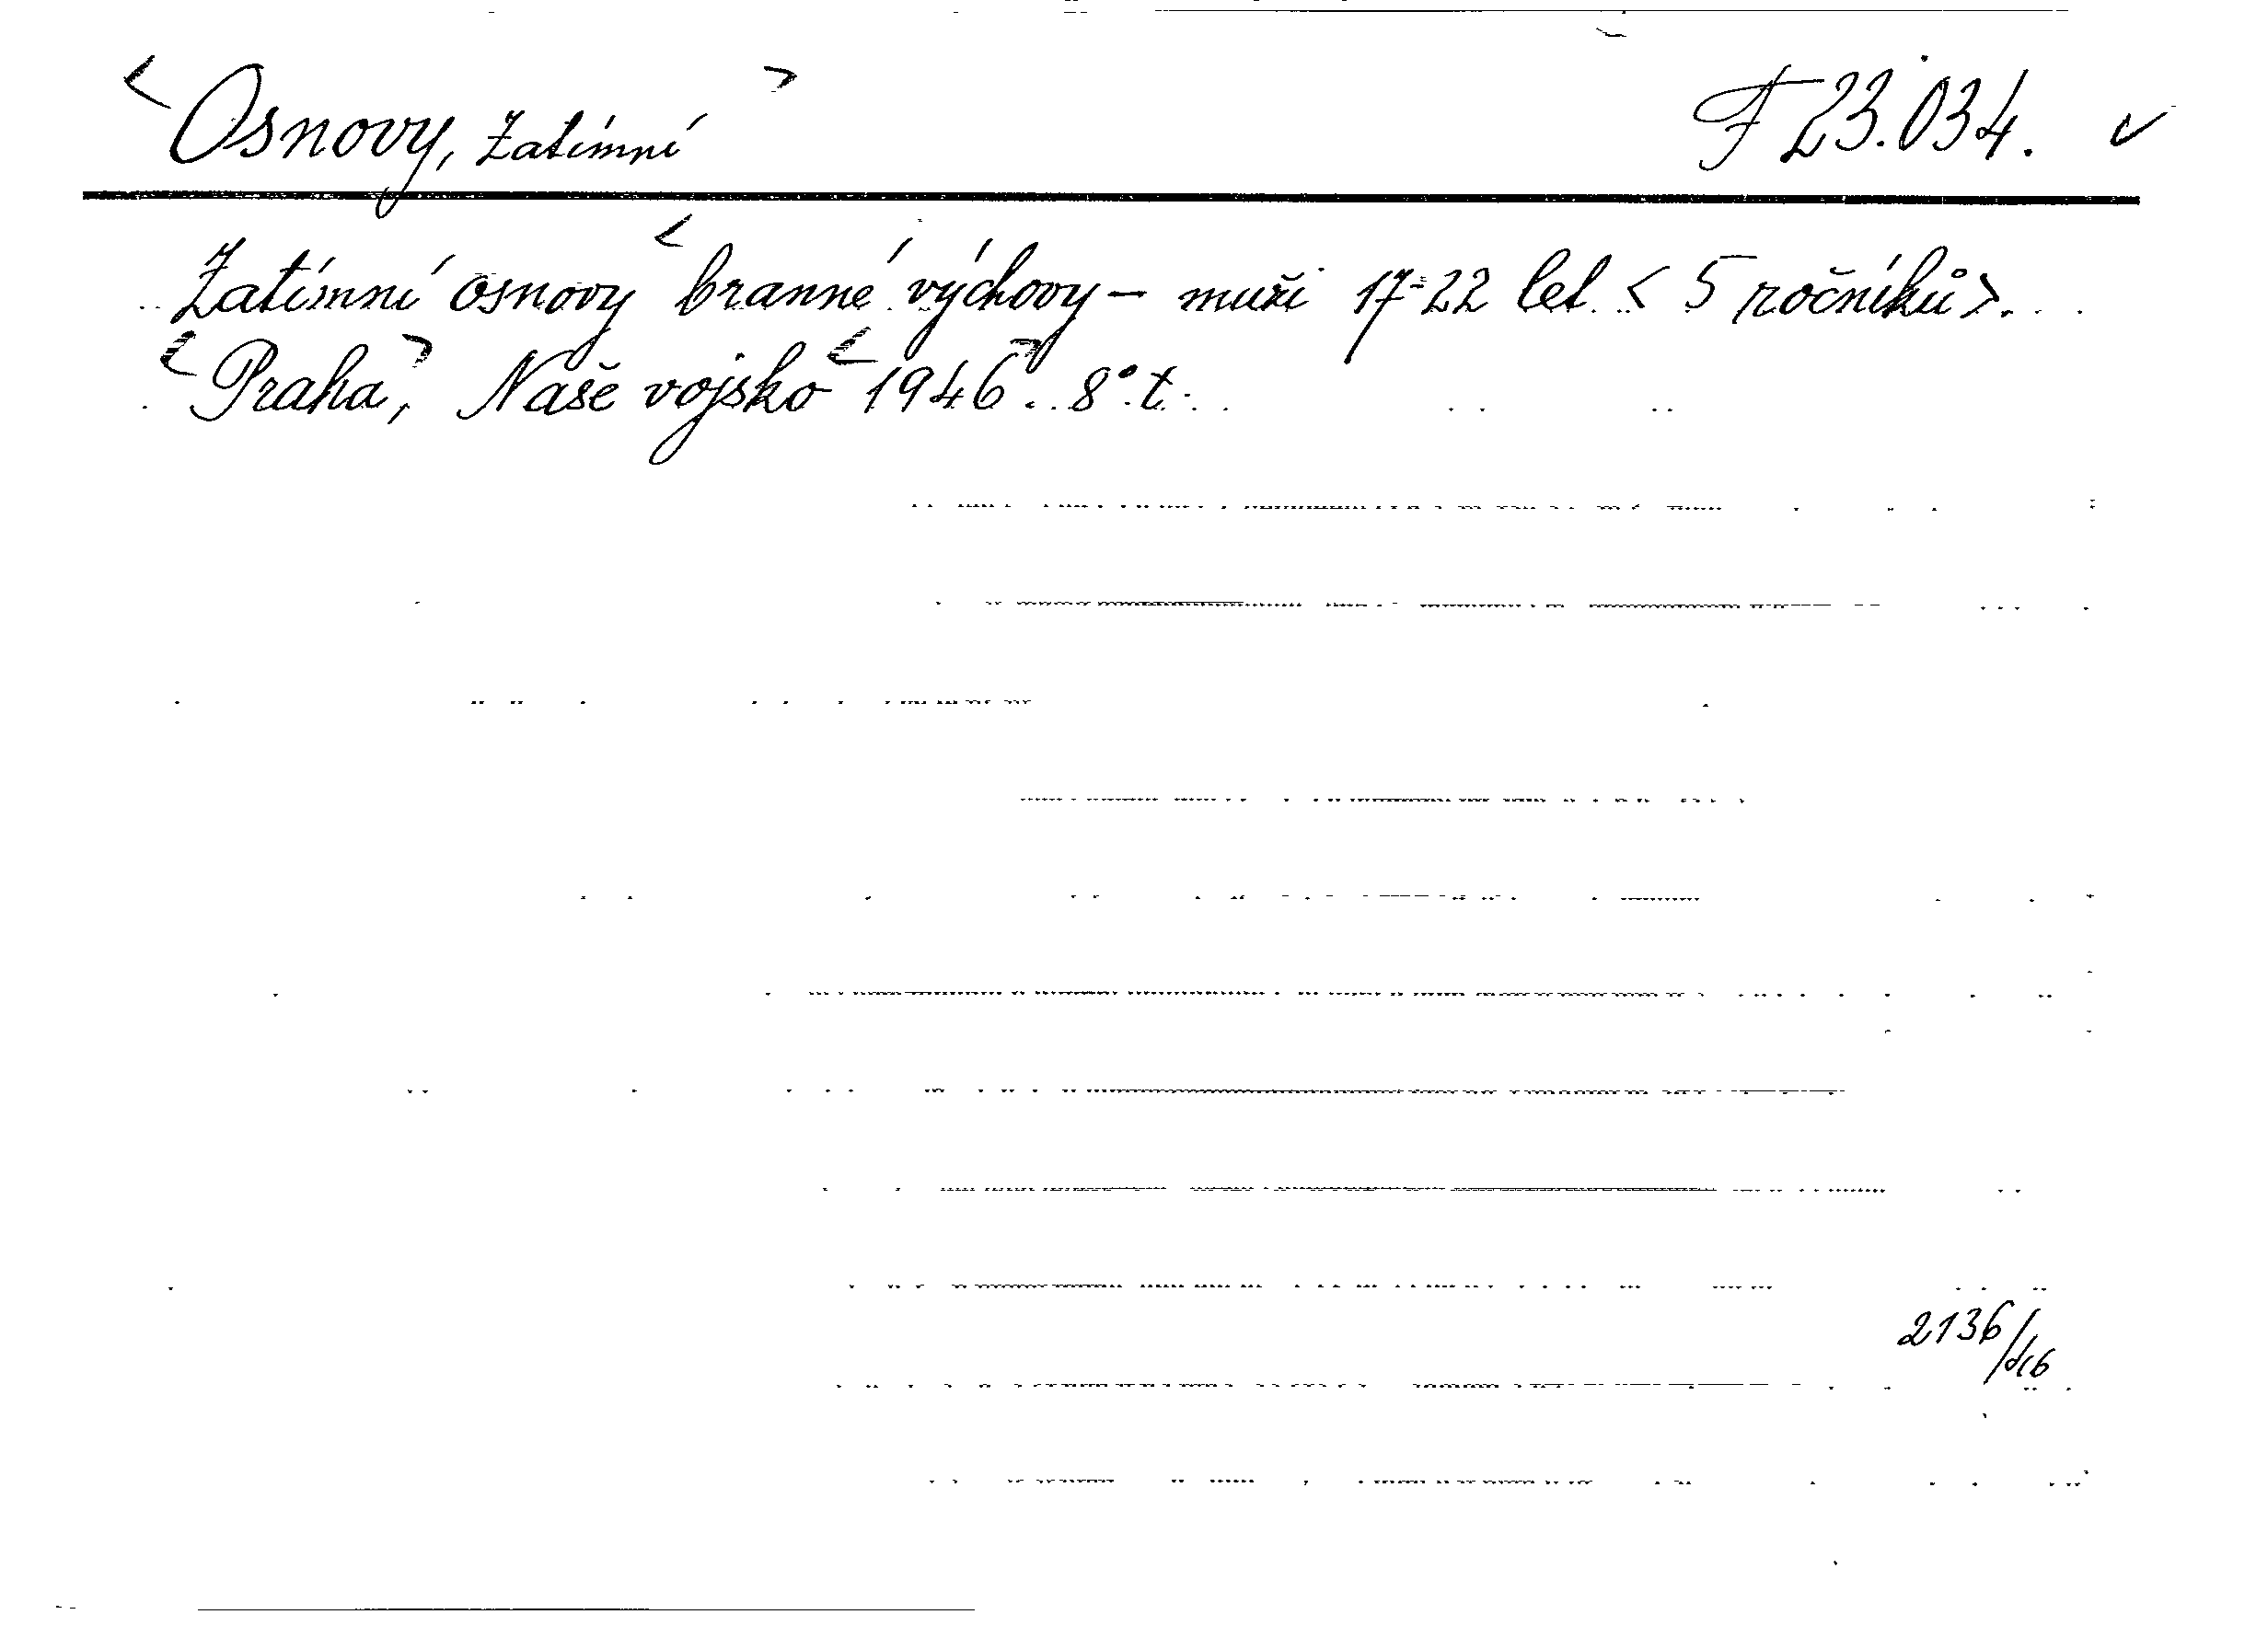 <Osnovy, Zatímní> F 23.034. ✓
Zatímní osnovy <branné výchovy – muži 17-22 let < 5 ročníků>.
<Praha>, Naše vojsko <1946>. 8° t.
2136/46